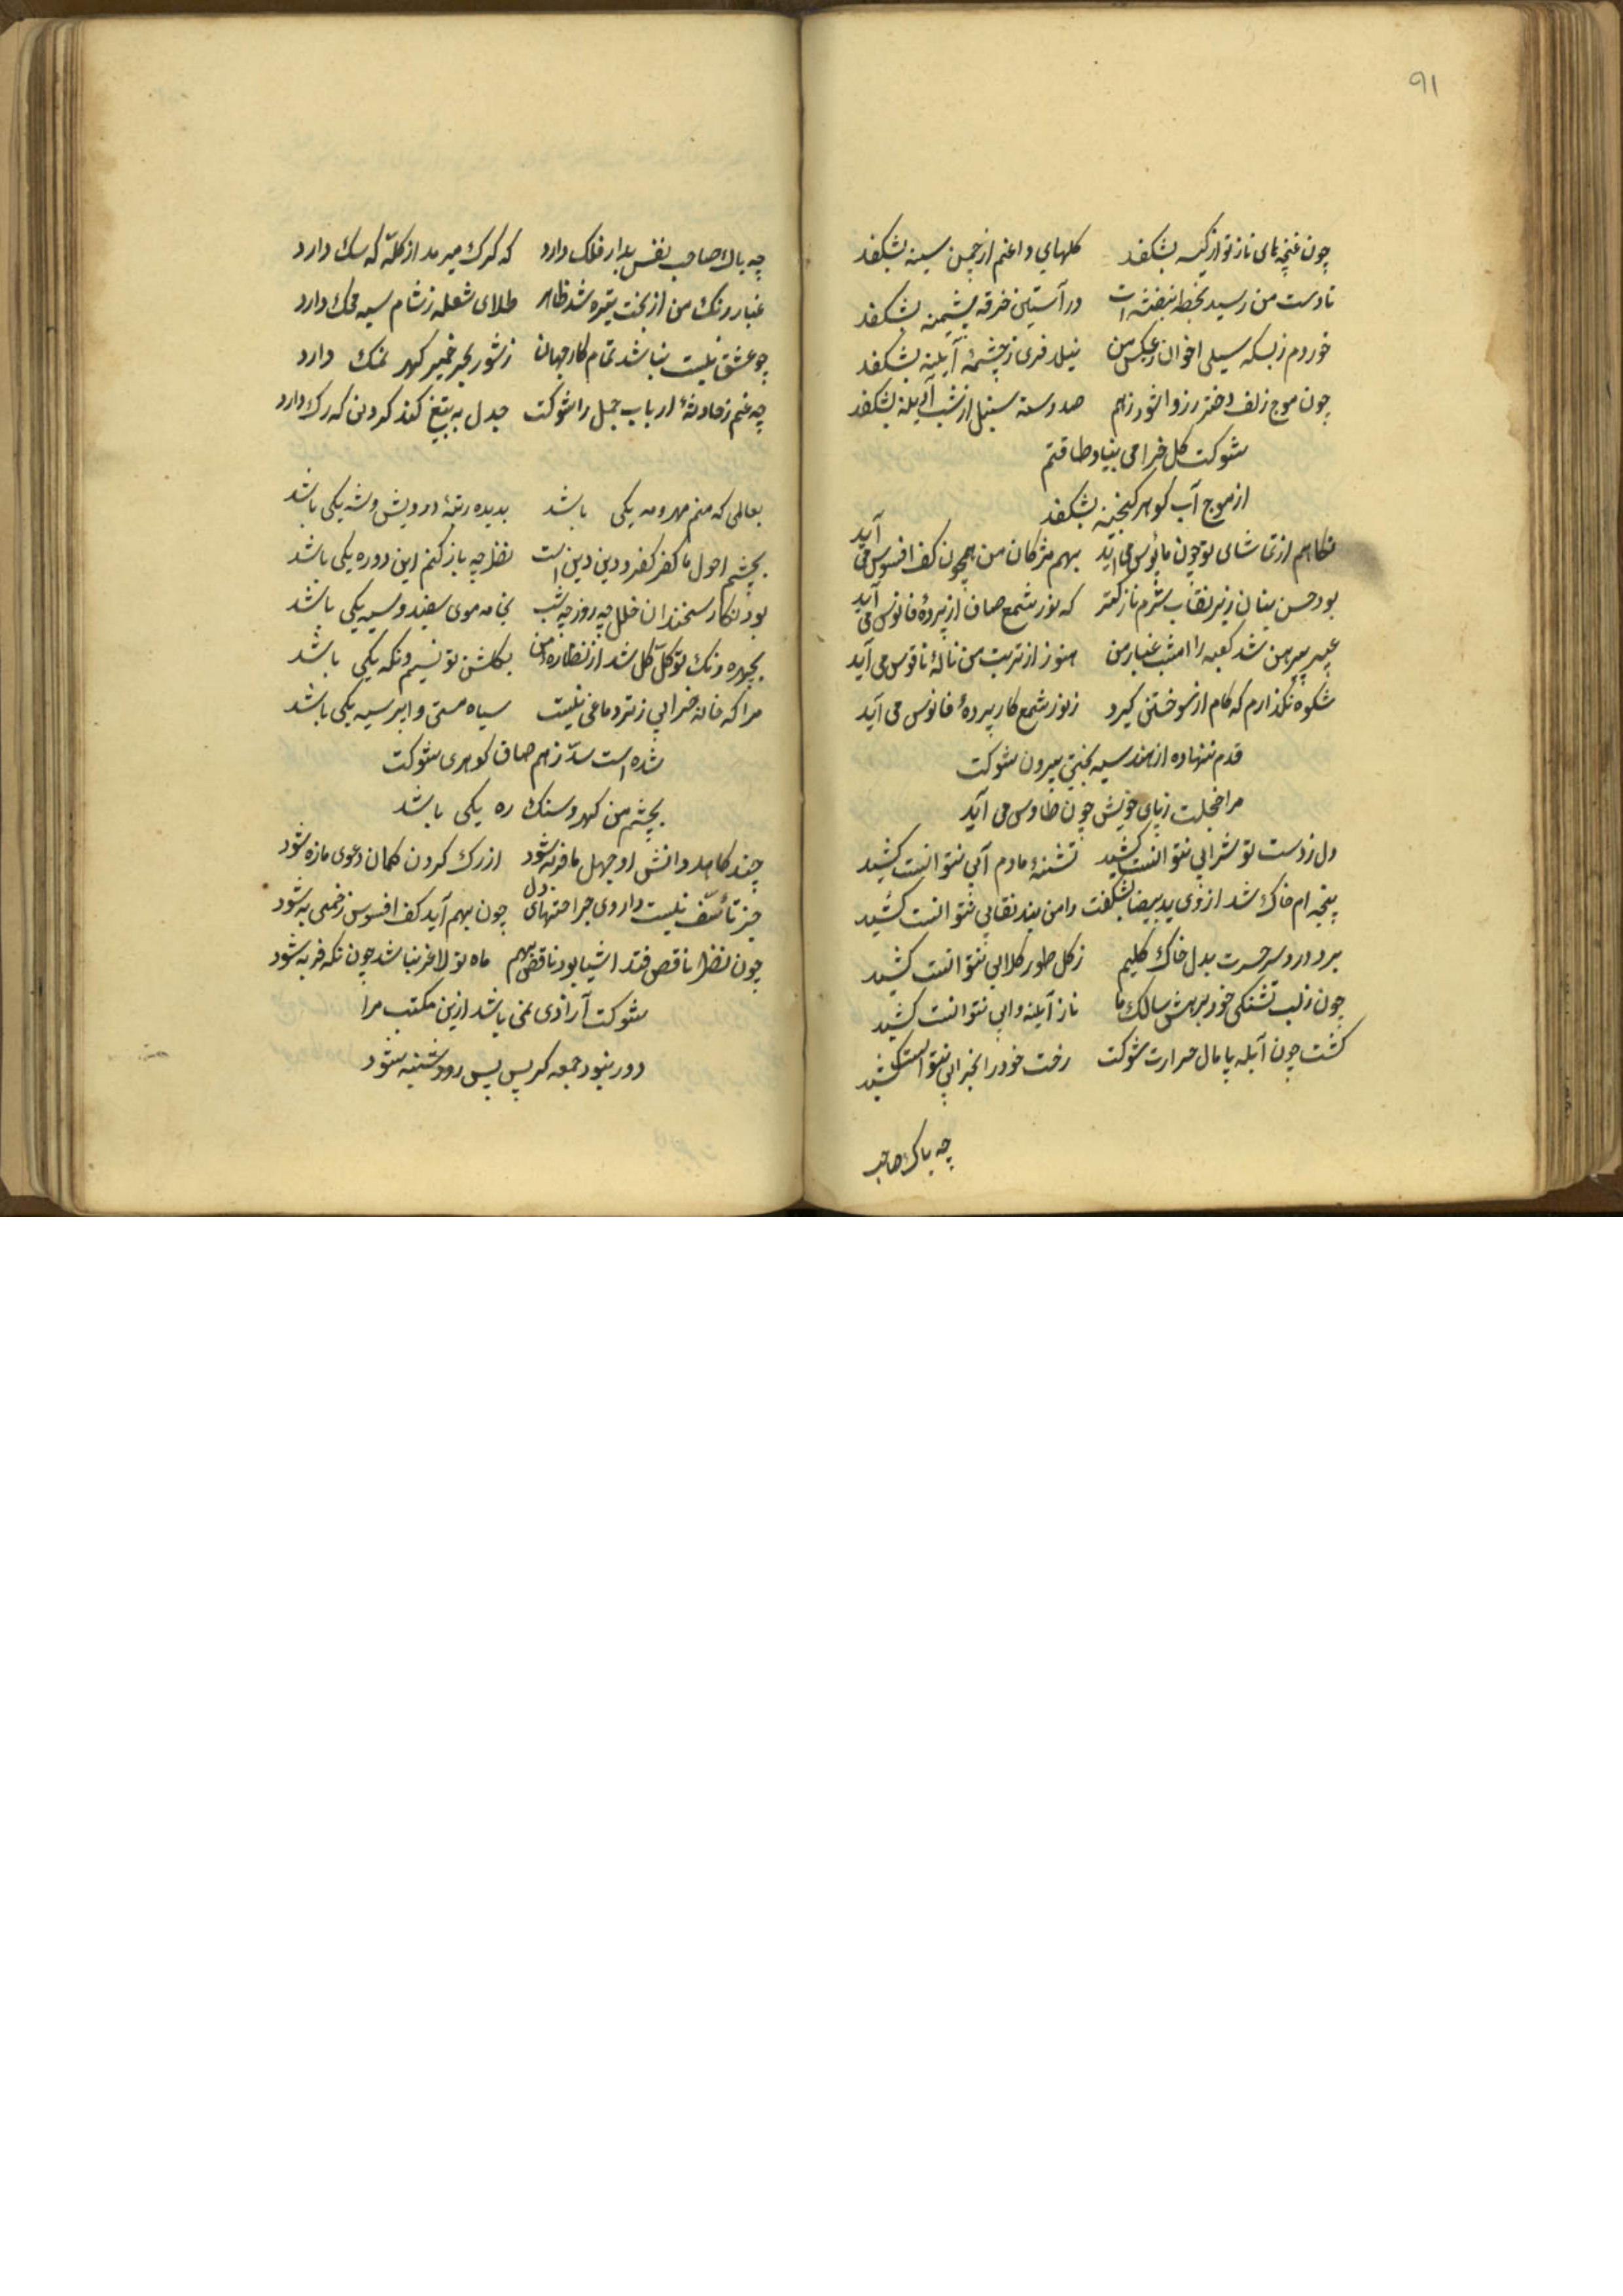 ٩١
چون غنچهای ناز تو از کینه بشکفد کلهای داغم از چمن سینه بشکفد
تا دست من رسید بخط بنفشه ات در آستین خرقه پشمینه بشکفد
خوردم زبسکه سیلی اخوان زعکس من نیلوفری ز چشمهٔ آیینه بشکفد
چون موج زلف دختر رز وا شود زهم صد دسته سنبل از شب آدینه بشکفد
شوکت کل خرامی بنیاد طاقتم
از موج آب کوهر کنجینه بشکفد
نکاهم از تماشای تو چون مایوس می آید بهم مژکان من همچون کف افسوس می آید
بود حسن بتان زیر نقاب شرم نازکتر که نور شمع صاف از پردهٔ فانوس می آید
عبیر پیرهن شد کعبه را امشب غبار من هنوز از تربت من نالهٔ ناقوس می آید
شکوه نکذارم که کام از سوختن کیرد ز نور شمع کار پردهٔ فانوس می آید
قدم ننهاده از هند سیه بختی بیرون شوکت
مرا خجلت ز پای خویش چون طاوس می آید
دل ز دست تو شرابی نتوانست کشید تشنهٔ ما دم آبی نتوانست کشید
پنجه ام خاک شد از وی ید بیضا بشکفت دامن بند نقابی نتوانست کشید
برد درد سر حسرت بدل خاک کلیم ز کل طور کلابی نتوانست کشید
چون ز لب تشنکی خود برهش سالک ما ناز آیینه و ابی نتوانست کشید
کشت چون آبله پامال حرارت شوکت رخت خود را بخرابی نتوانست کشید
چه باک صاحب
چه باک صاحب نفس بد از فلک دارد که کرک میرمد از کلّه که سک دارد
غبار رنک من از بخت تیره شد ظاهر طلای شعله ز شام سیه محک دارد
چو عشق نیست نباشد تمام کار جهان ز شور بحر خمیر کهر نمک دارد
چه غم ز حادثهٔ ارباب جمل را شوکت جدل به تیغ کند کردنی که رک دارد
بعالمی که منم مهر و مه یکی باشد بدیده رتبهٔ درویش و شه یکی باشد
بچشم احول ما کفر کفر و دین دین است نظر چه باز کنم این دو ره یکی باشد
بود نکار سخندان خلل چه روز چه شب بخامه موی سفید و سیه یکی باشد
بچهره رنک تو کل کل شد از نظاره من بکلشن تو نسیم و نکه یکی باشد
مرا که خانه خرابی ز تر دماغی نیست سیاه مستی و ابر سیه یکی باشد
شده است سدّ رهم صاف کوهری شوکت
بچشم من کهر و سنک ره یکی باشد
چند کاهد دانش او جهل ما فربه شود از رک کردن کمان دعوی ما زه شود
جز تأسّف نیست داروی جراحتهای دل چون بهم آید کف افسوس زخمی به شود
چون نظر ناقص فتد اشیا بود ناقص بهم ماه نو لاغر نباشد چون نکه فربه شود
شوکت آزادی نمی باشد ازین مکتب مرا
دور نبود جمعه کر پس پس رود شنبه شود